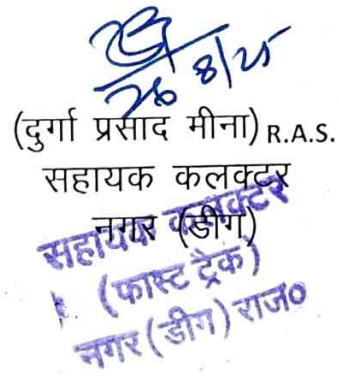 26/8/25
(दुर्गा प्रसाद मीना) R.A.S.
सहायक कलक्टर
नगर (डीग)
सहायक कलक्टर
(फास्ट ट्रेक)
नगर (डीग) राज०